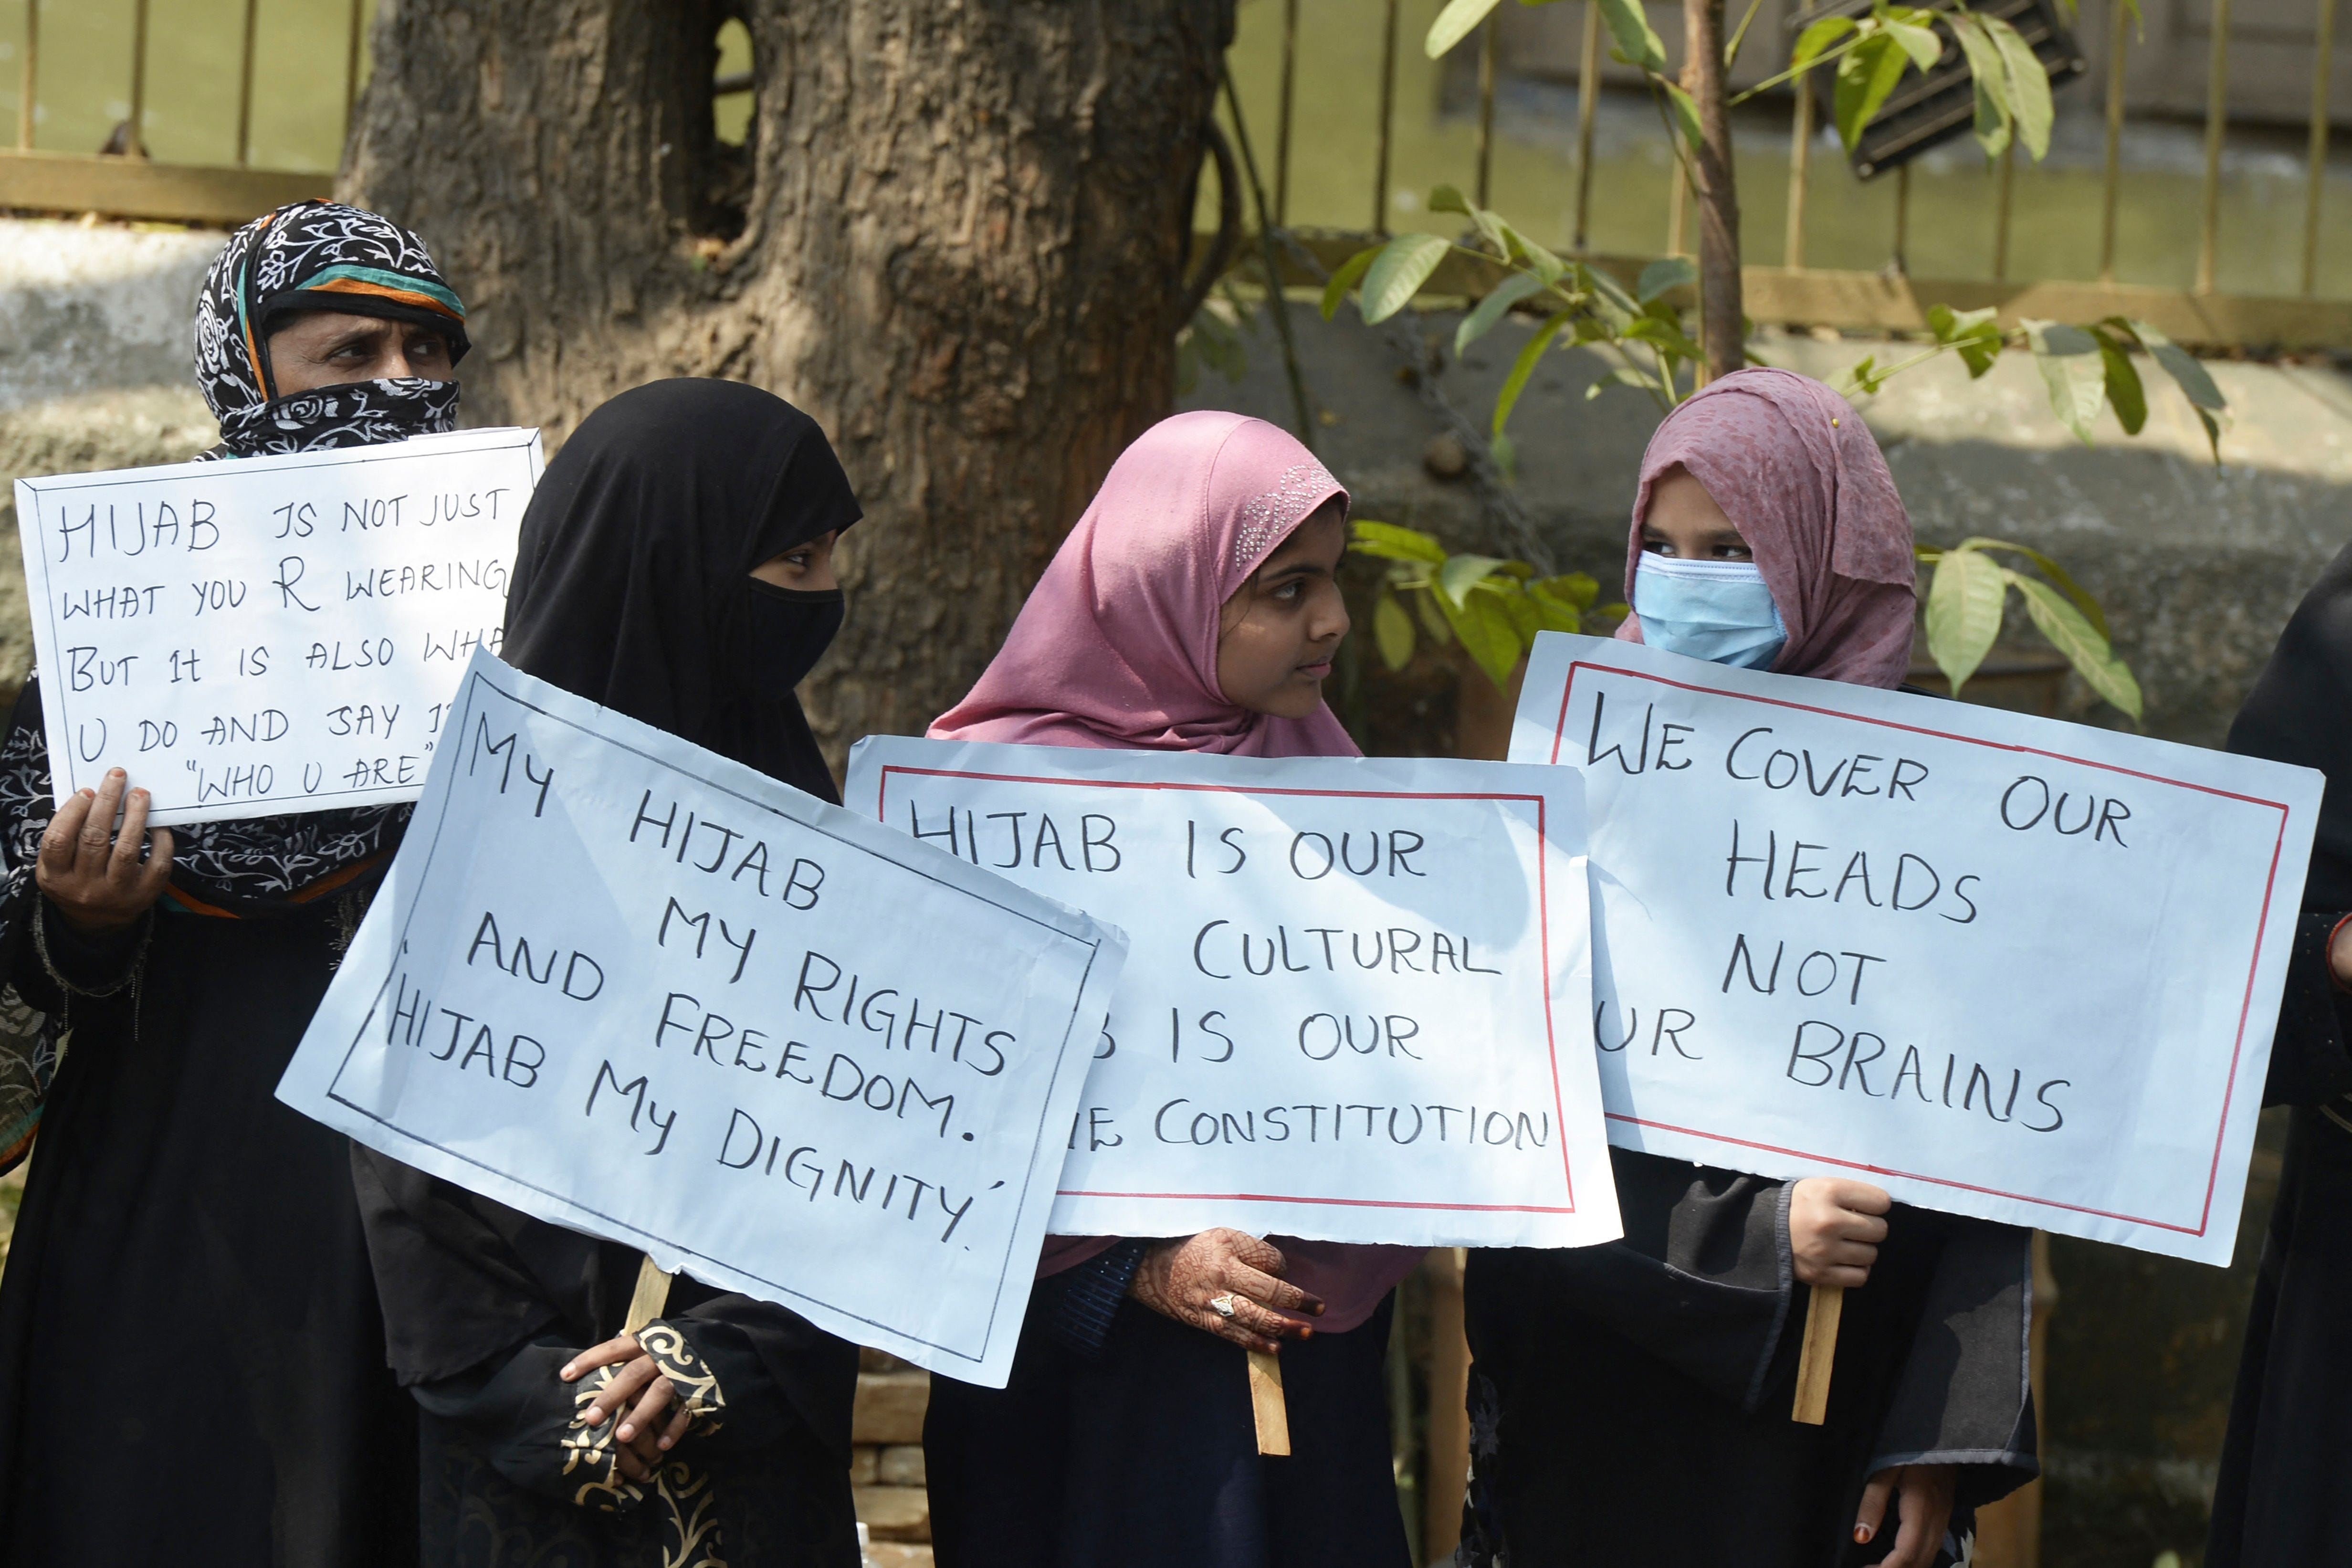 HIJAB IS NOT JUST
WHAT YOU R WEARING
BUT It IS ALSO WHA
U DO AND SAY
"WHO U ARE"
MY HIJAB
MY RIGHTS
AND FREEDOM.
'HIJAB MY DIGNITY.'
HIJAB IS OUR
CULTURAL
IS OUR
CONSTITUTION
WE COVER OUR
HEADS
NOT
UR BRAINS